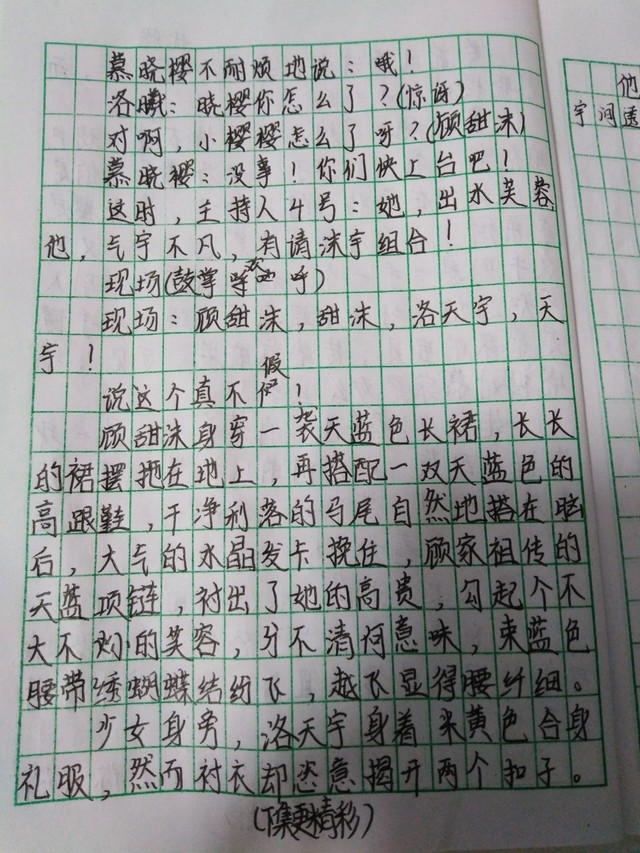 慕晓樱不耐烦地说：哦！
洛曦：晓樱你怎么了？(惊讶)
对啊，小樱樱怎么了呀？(顾甜沫)
慕晓樱：没事！你们快上台吧！
这时，主持人4号：她，出水芙蓉
他，气宇不凡，有请沫宇组合！
现场(鼓掌 欢呼)
现场：顾甜沫，甜沫，洛天宇，天
宇！
说这个真不假！
顾甜沫身穿一袭天蓝色长裙，长长
的裙摆拖在地上，再搭配一双天蓝色的
高跟鞋，干净利落的马尾自然地搭在脑
后，大气的水晶发卡挽住，顾家祖传的
天蓝项链，衬出了她的高贵，勾起个不
大不小的笑容，分不清何意味，束蓝色
腰带绣蝴蝶结纷飞，越飞显得腰纤细。
少女身旁，洛天宇身着米黄色合身
礼服，然而衬衣却恣意揭开两个扣子。
(下集更精彩)
他
宇间透